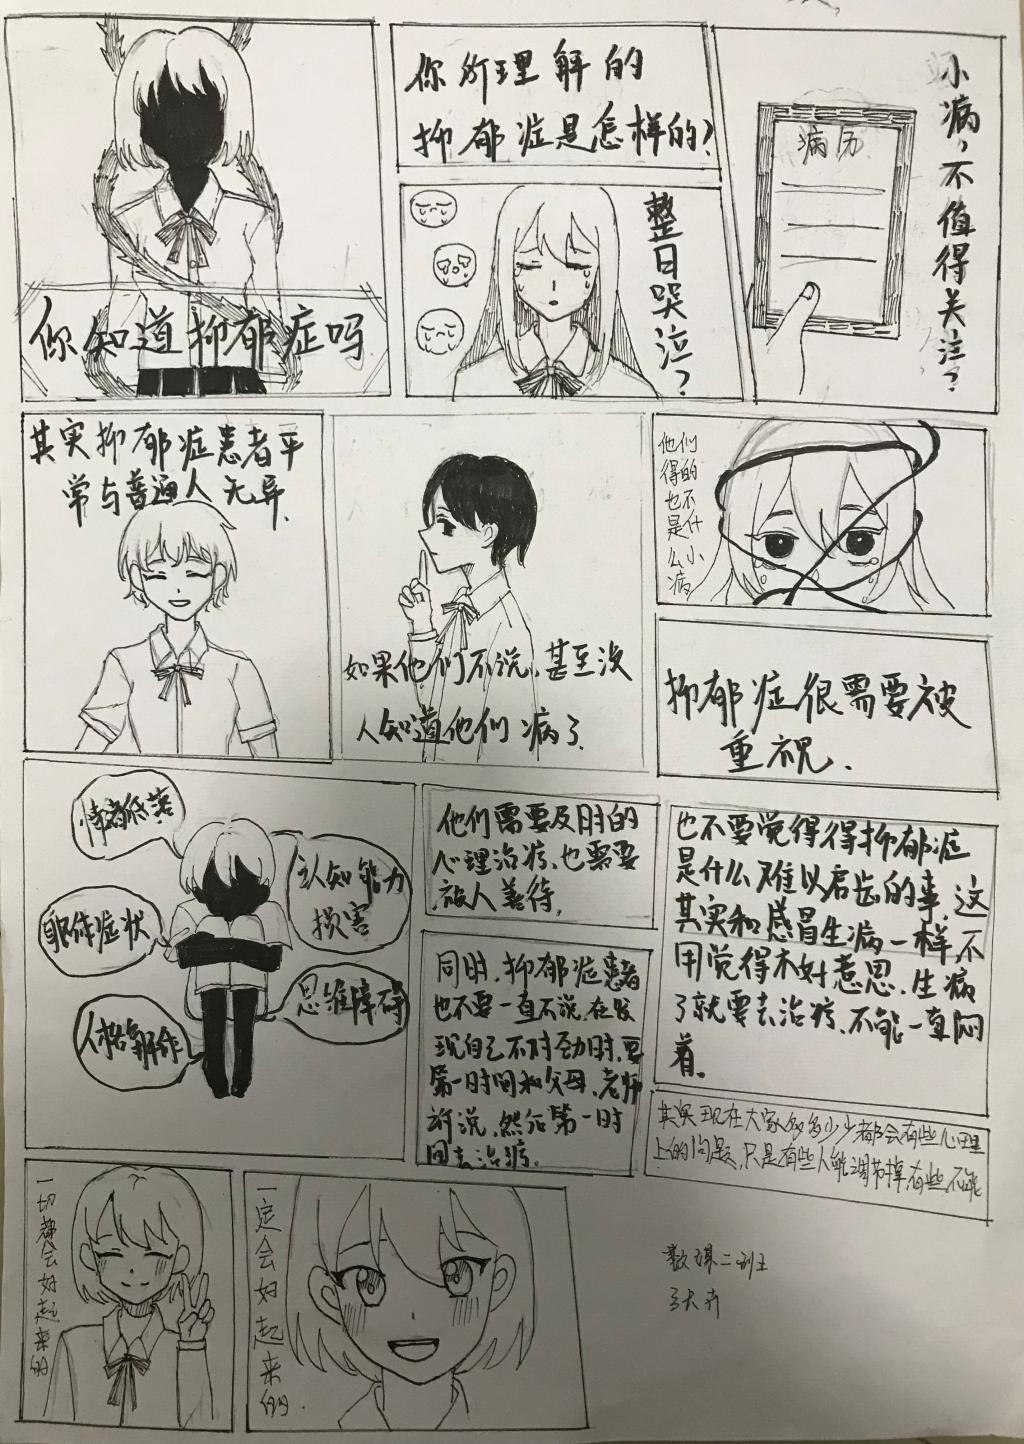 你知道抑郁症吗
你所理解的
抑郁症是怎样的?
整日哭泣?
小病,不值得关注?
病历
其实抑郁症患者平
常与普通人无异.
如果他们不说,甚至没
人知道他们病了.
他们
得的
也不
是什
么小
病
抑郁症很需要被
重视.
情绪低落
认知能力
损害
躯体症状
思维障碍
人格解体
他们需要及时的
心理治疗,也需要
被人善待.
同时,抑郁症患者
也不要一直不说,在发
现自己不对劲时,要
第一时间和父母、老师
诉说,然后第一时
间去治疗.
也不要觉得得抑郁症
是什么难以启齿的事,这
其实和感冒生病一样,不
用觉得不好意思.生病
了就要去治疗,不能一直闷
着.
其实现在大家多多少少都会有些心理
上的问题,只是有些人能调节掉,有些不能
一切都会好起来的
一定会好起来的.
二班